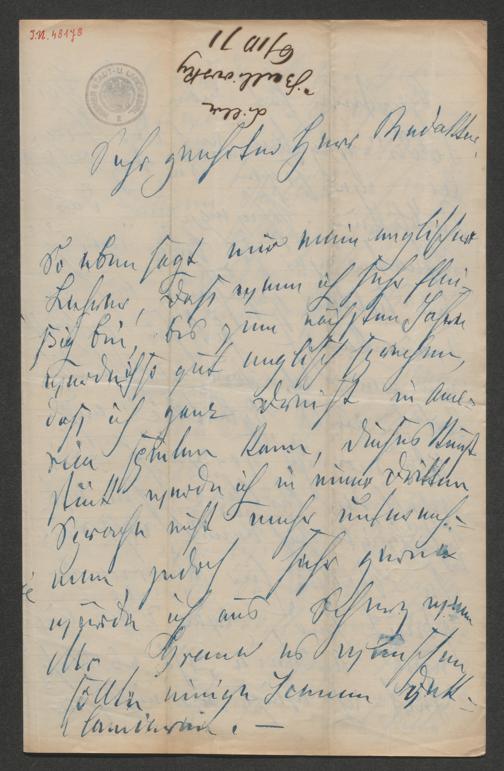 I.N. 48178
6/10 71
Sehr geehrter Herr Redakteur,
So eben sagt mir mein englischer
Lehrer, daß wenn ich sehr flei-
ßig bin, bis zum nächsten Jahre
werde ich so gut englisch sprechen,
daß ich ganz dreist in Ame-
rica spielen kann, dieses Kunst
stück werde ich in einer dritten
Sprache nicht mehr unterneh-
men, jedoch sehr gerne
würde ich aus Scherz wenn
Mr. es wünschen
sollte einige Scenen dekl-
lamieren. —